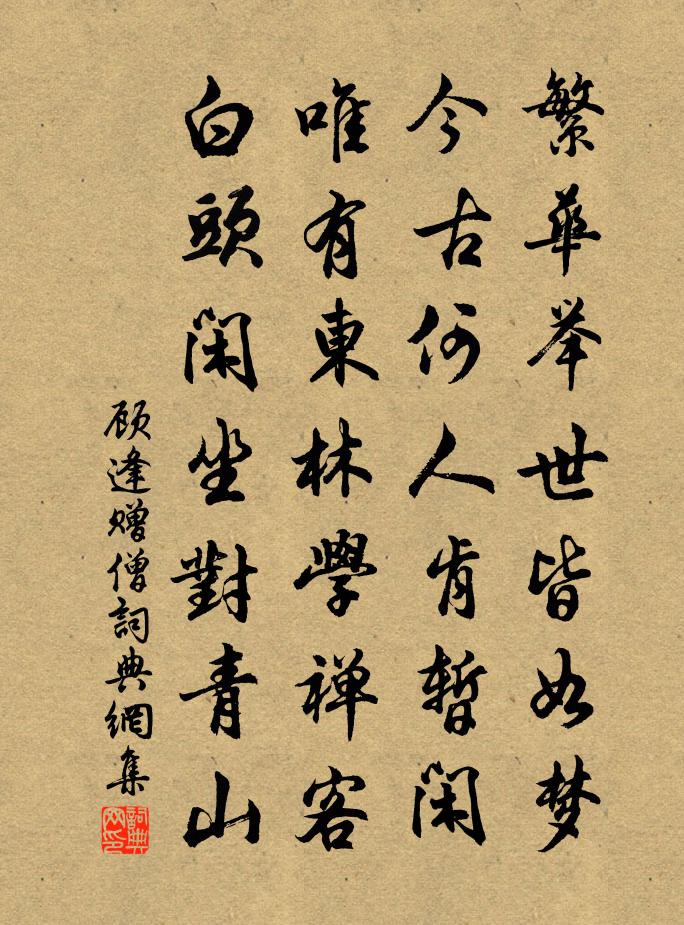 繁華举世皆如梦
今古何人肯暫閑
唯有東林學禅客
白頭閑坐對青山
顾逢赠僧詞典網集
詞典网印